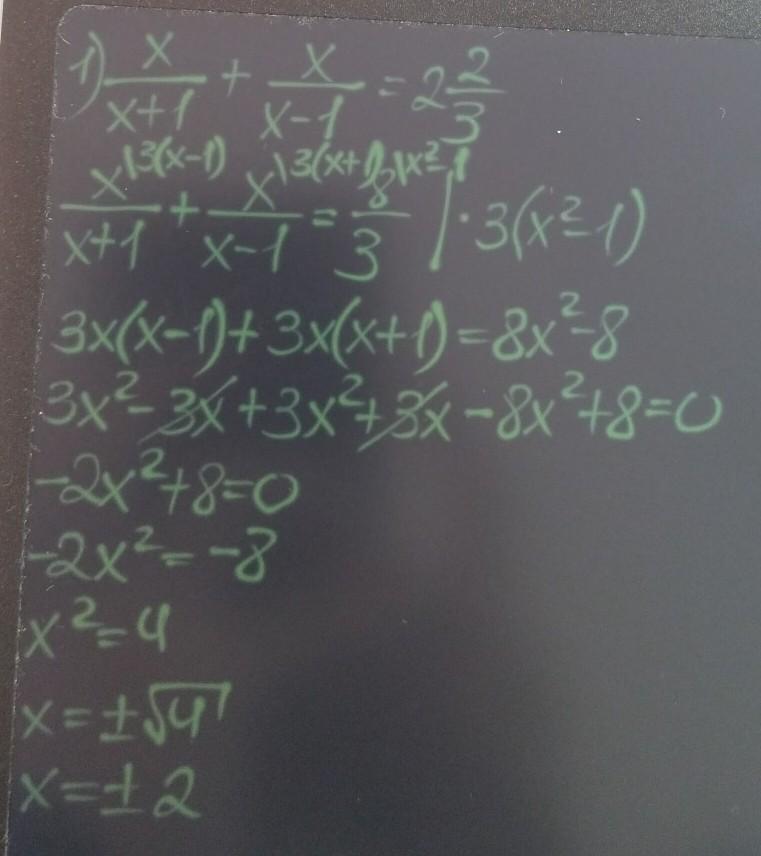 1) x/(x+1) + x/(x-1) = 2 2/3
x\3(x-1)/(x+1) + x\3(x+1)/(x-1) = 8\x²-1/3 | · 3(x²-1)
3x(x-1)+3x(x+1)=8x²-8
3x²-3x+3x²+3x-8x²+8=0
-2x²+8=0
-2x²=-8
x²=4
x=±√4
x=±2